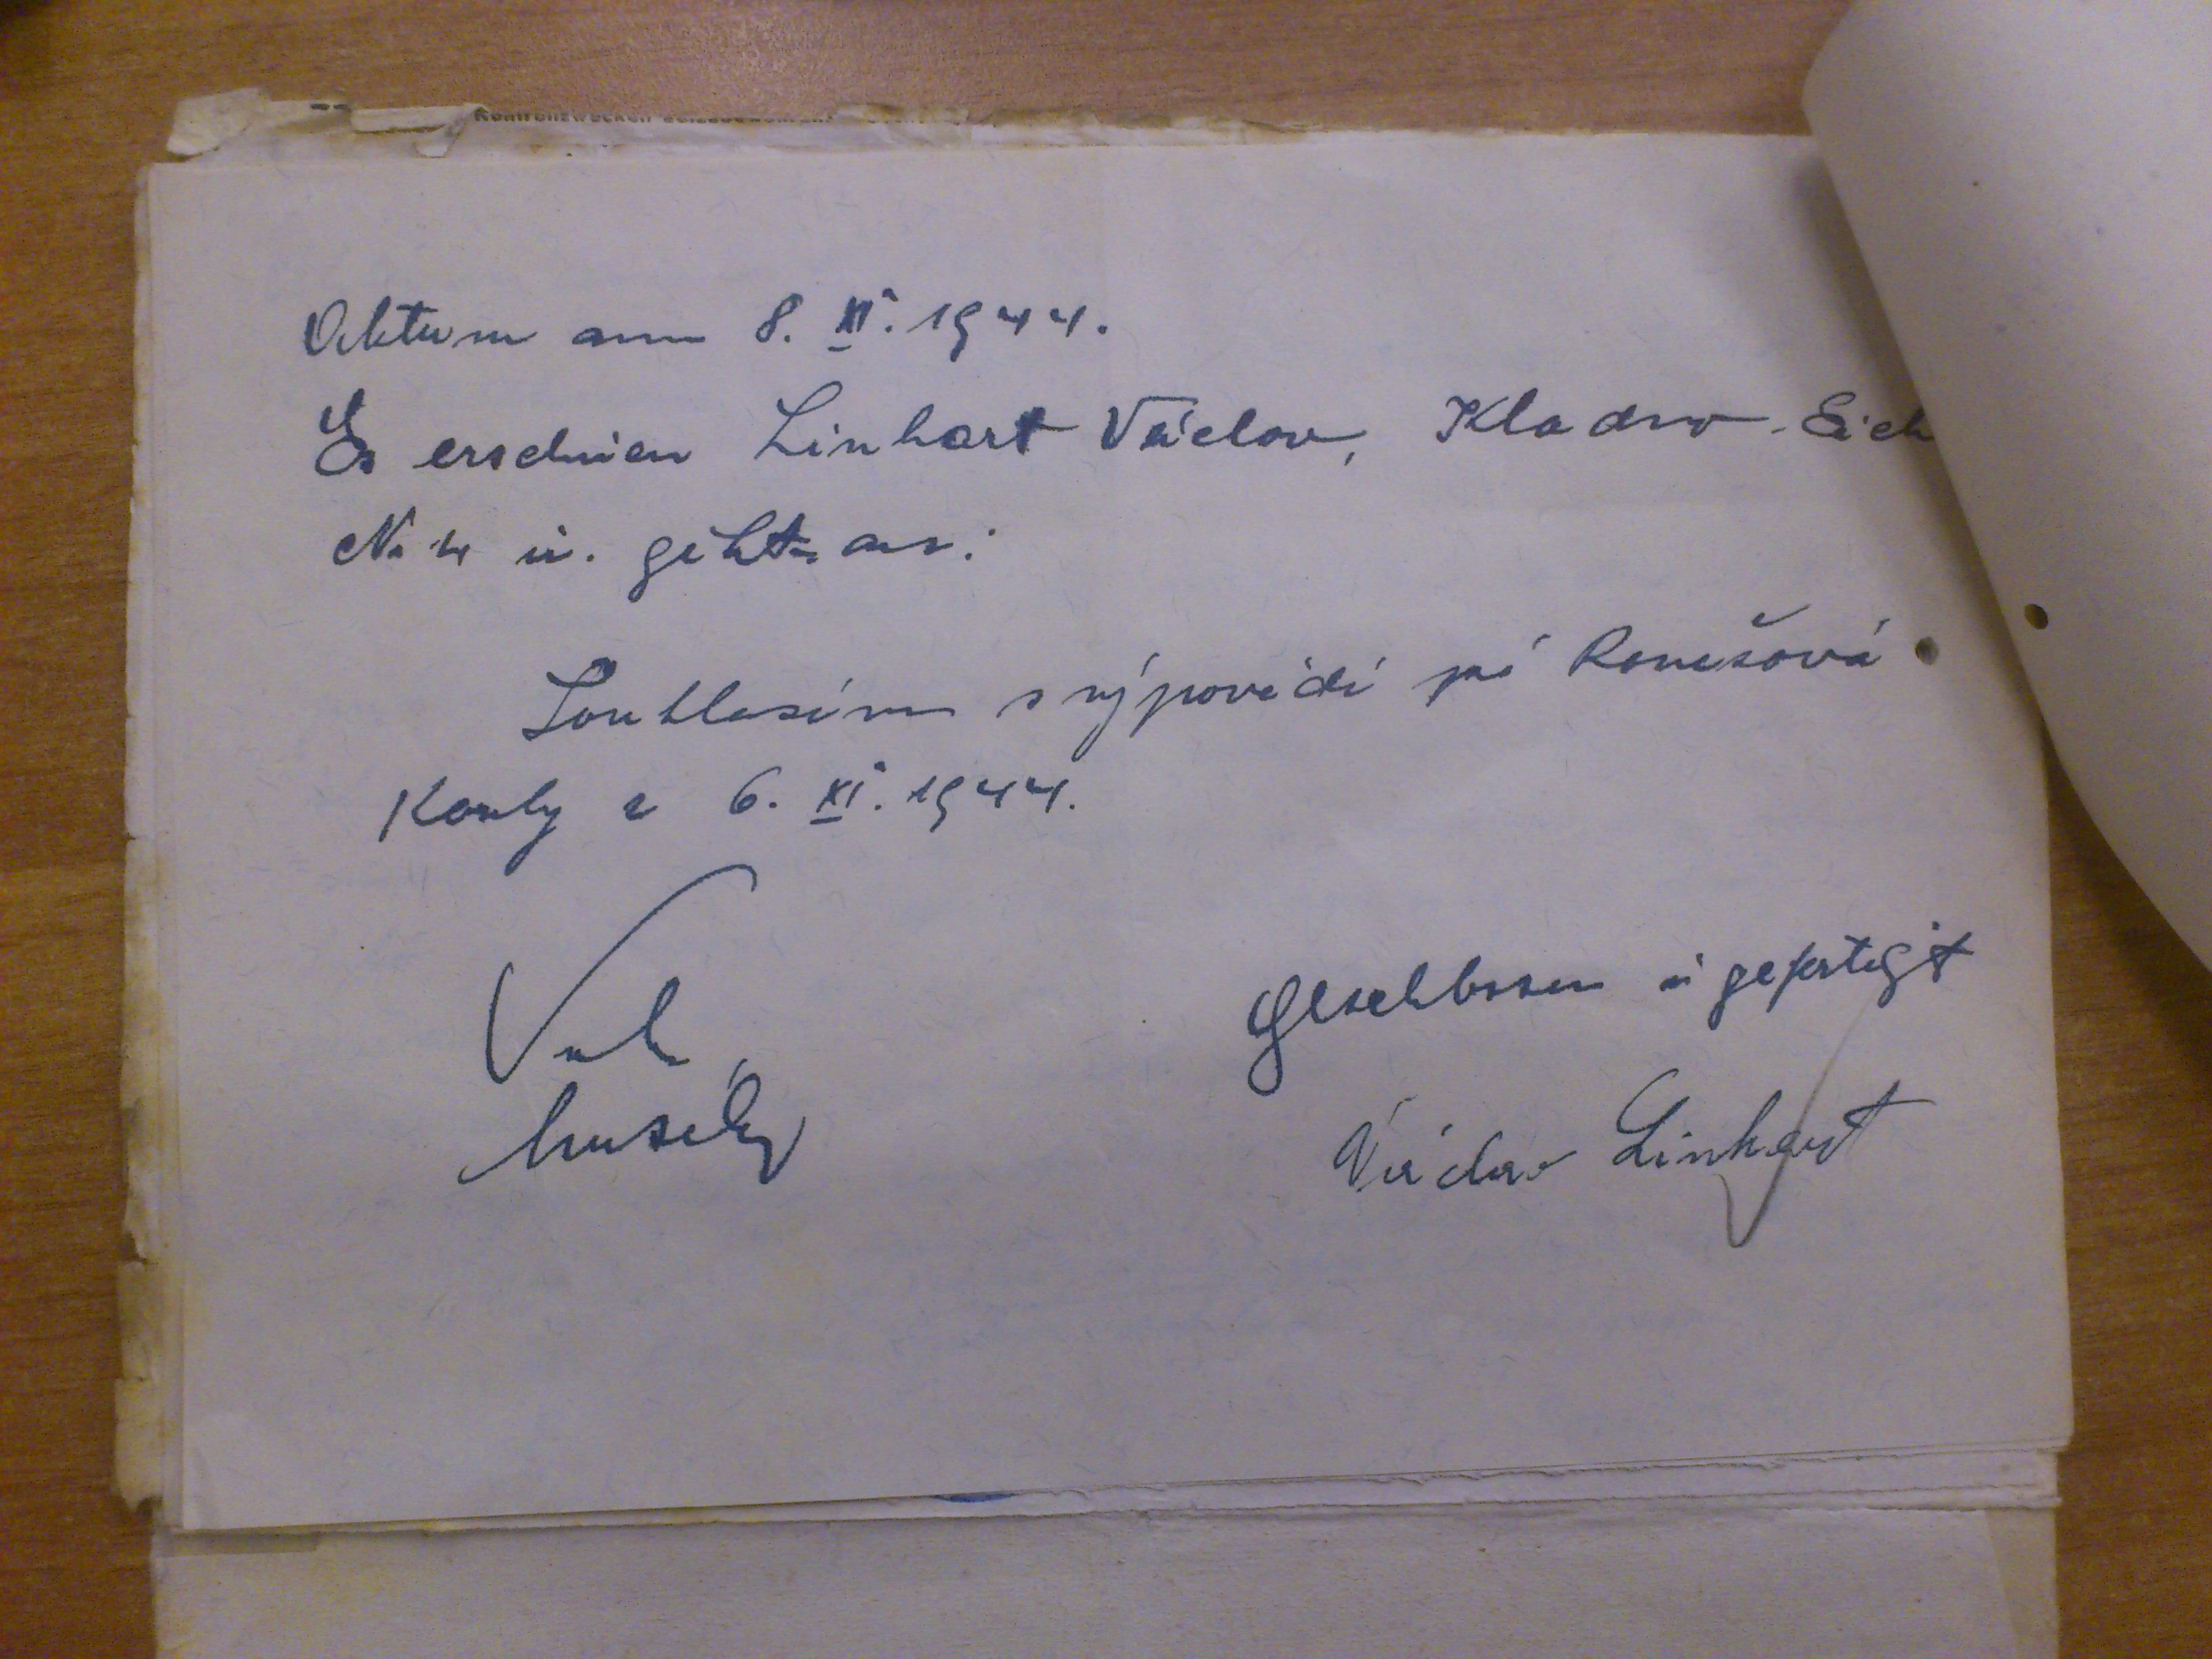 Kontrollzwecken
Aktum am 8. XI. 1944.
Es erschien Linhart Václav, Kladno - Eich
No 4 u. gibt an:
Souhlasím s výpovědí pí Ronešová
z 6. XI. 1944.
Geschlossen u gefertigt
Václav Linhart